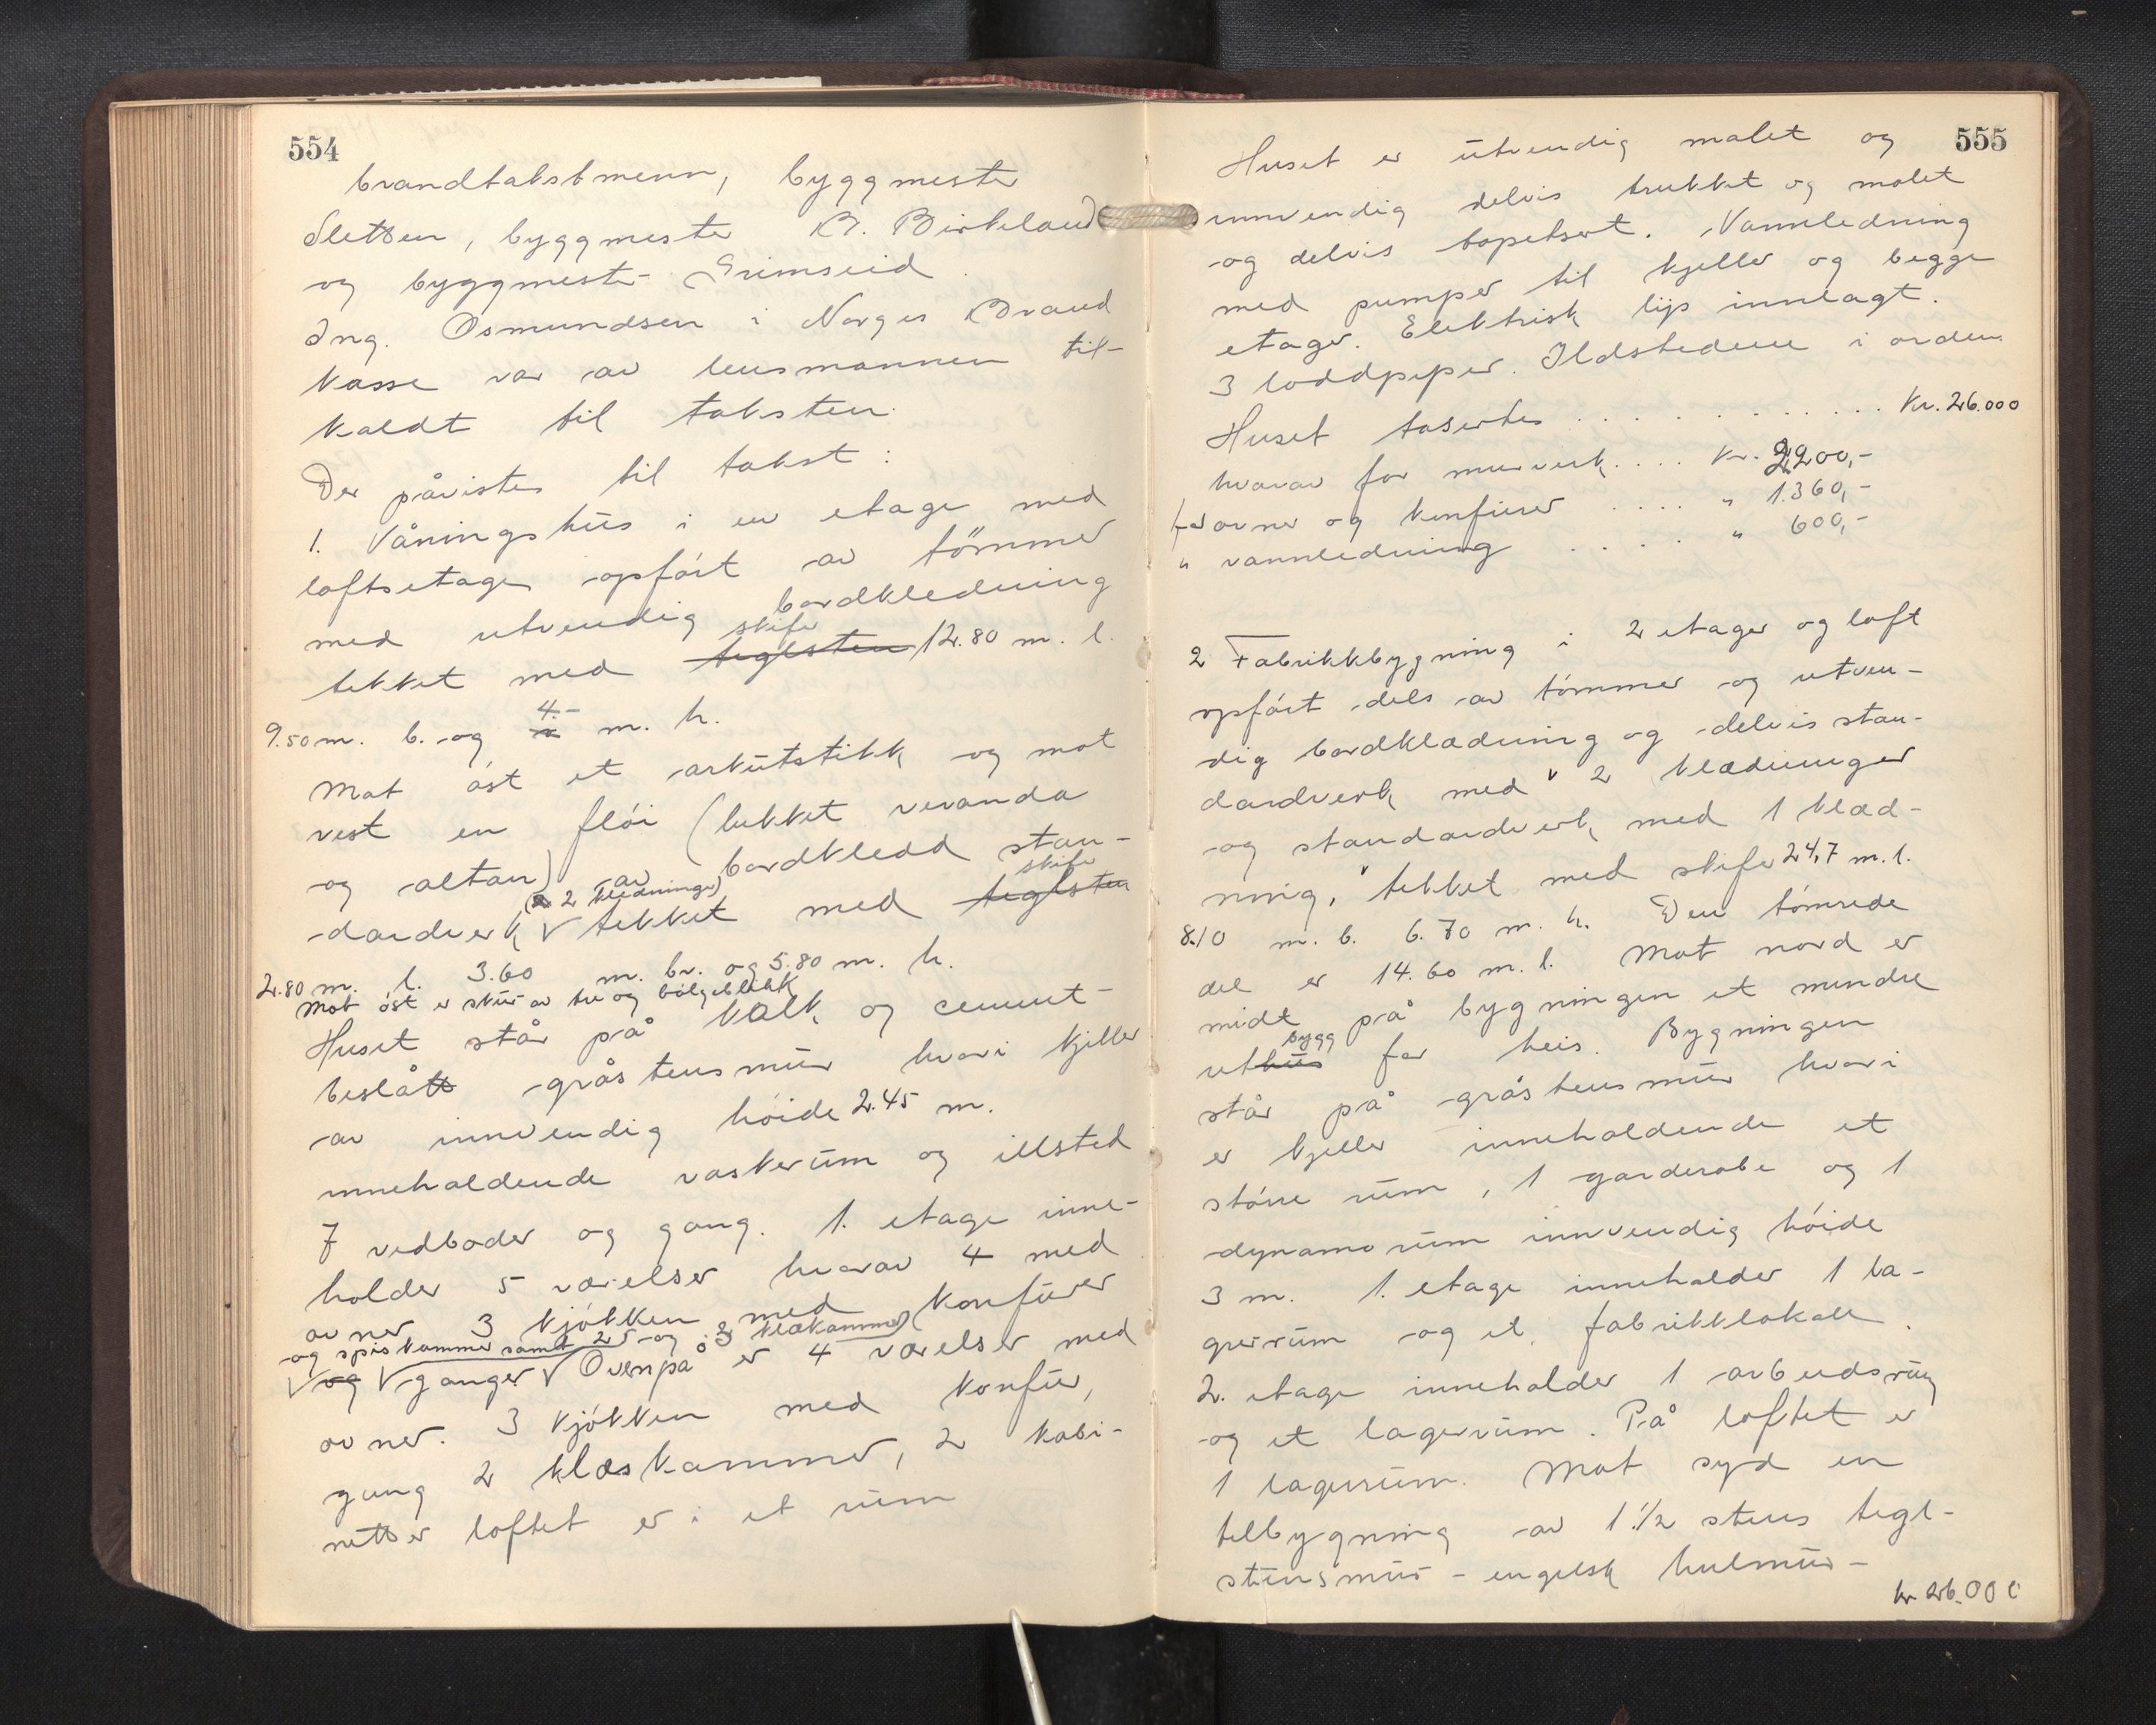 554
brandtakstmenn, byggmester
Sletten, byggmester B. Birkeland
og byggmester Grimseid.
Ing. Osmundsen i Norges Brand
kasse var av lensmannen til-
kaldt til taksten.
Der påvistes til takst:
1. Våningshus i en etage med
loftsetage opført av tømmer
med utvendig bordkledning
skifer
tekket med teglsten 12.80 m. l.
4.-
9.50 m. b. og m. h.
Mot øst et arkutstikk og mot
vest en fløi (lukket veranda
og altan) av bordkledd stan-
(2 kledninger) skifer
dardverk tekket med teglsten
2.80 m. l. 3.60 m. br. og 5.80 m. h.
Mot øst er skur av tre og bølgeblikk
Huset står på kalk og cement-
beslått gråstensmur hvori kjeller
av innvendig høide 2.45 m.
inneholdende vaskerum og illsted
7 vedboder og gang. 1. etage inne-
holder 5 værelser hvorav 4 med
ovner 3 kjøkken med komfürer
og spiskammer samt 2 og 3 klækammer
og ganger Ovenpå er 4 værelser med
ovner. 3 kjøkken med komfür,
gang 2 klæskammer, 2 kabi-
netter loftet er i et rum
555
Huset er utvendig malet og
innvendig delvis trukket og malet
og delvis tapetsert. Vannledning
med pumper til kjeller og begge
etager. Elektrisk lys innlagt.
3 loddpiper. Ildstedene i orden.
Huset takseres . . . . . . . . . . . . Kr. 26.000
hvorav for murverk . . . . Kr. 2,200,-
for ovner og komfürer . . . . " 1.360,-
" vannledning . . . . " 600,-
2 Fabrikkbygning i 2 etager og loft
opført dels av tømmer og utven-
dig bordklædning og delvis stan-
dardverk med 2 klædninger
og standardverk med 1 klæd-
ning, tekket med skifer 24,7 m. l.
8.10 m. b. 6.70 m. h. Den tømrede
del er 14.60 m. l. Mot nord er
midt på bygningen et mindre
bygg
uthus for heis. Bygningen
står på gråstensmur hvori
er kjeller inneholdende et
større rum, 1 garderobe og 1
dynamorum innvendig høide
3 m. 1. etage inneholder 1 la-
gerrum og et fabrikklokale.
2. etage inneholder 1 arbeidsrum
og et lagerrum. På loftet er
1 lagerrum. Mot syd en
tilbygning av 1 1/2 stens tegl-
stensmur - engelsk hulmur -
kr 26.000